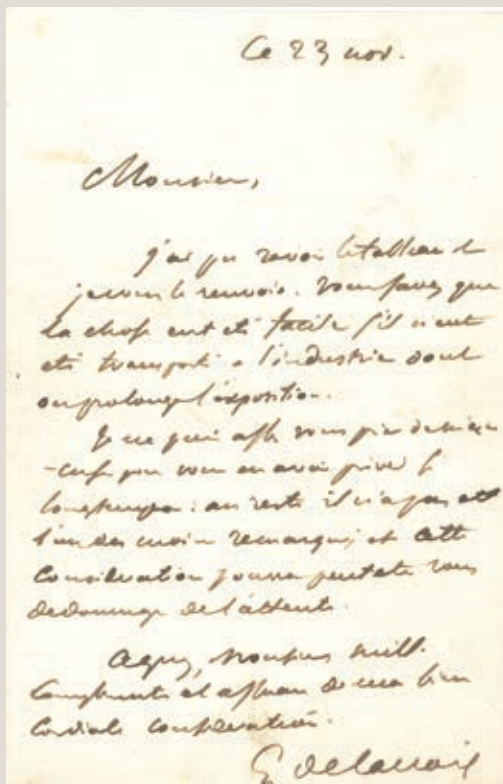 Ce 23 nov.
Monsieur,
J'ai pu ravoir le tableau et
je vous le renvoie. Vous savez que
la chose eut été facile s'il n'eut
été transporté à l'industrie dont
on prolonge l'exposition.
Je ne puis assez vous prier de m'ex-
-cuser pour vous en avoir privé si
longtemps : au reste il n'a pas été
l'un des moins remarqués et cette
considération pourra peut être vous
dedommager de l'attente.
Agréez, Monsieur mille
compliments et assurances de ma bien
cordiale considération.
E Delacroix